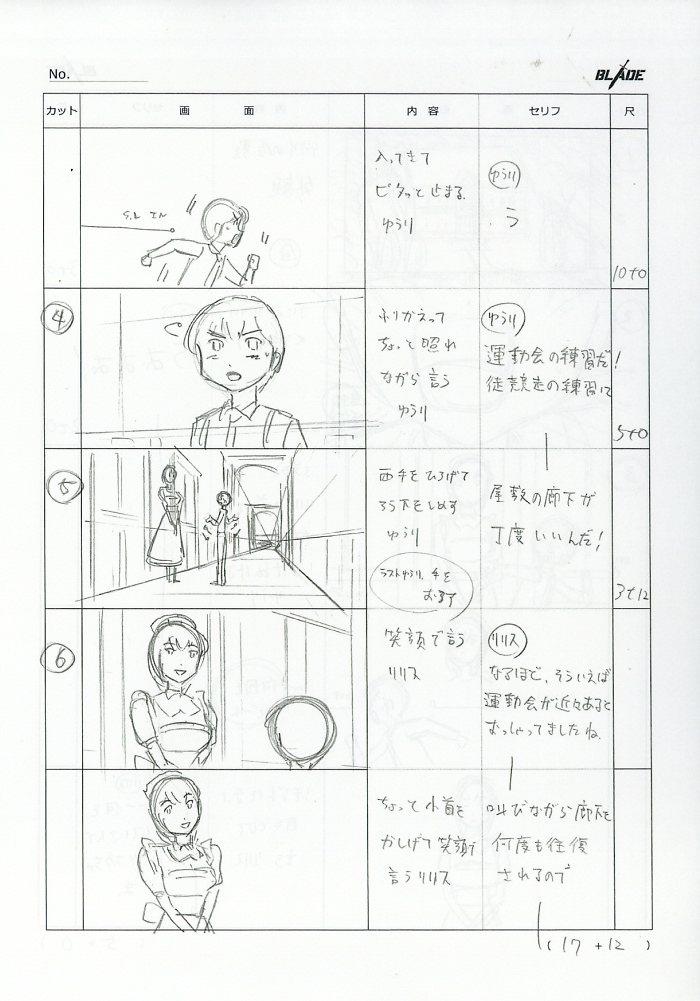 No.
BLADE
カット 画面 内容 セリフ 尺
S.L IN
入ってきて
ピタッと止まる
ゆうり
ゆうり
う
10+0
4
ふりかえって
ちょっと照れ
ながら言う
ゆうり
ゆうり
運動会の練習だ!
徒競走の練習に
5+0
5
両手をひろげて
ろう下をしめす
ゆうり
ラストゆうり、手を
おろす
屋敷の廊下が
丁度いいんだ!
3+12
6
笑顔で言う
リリス
リリス
なるほど、そういえば
運動会が近々あると
おっしゃってましたね。
ちょっと小首を
かしげて笑顔で
言うリリス
叫びながら廊下を
何度も往復
されるので
(17+12)